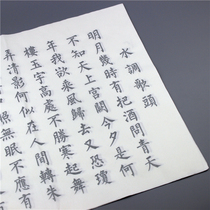 水調歌頭
明月幾時有把酒問青天
不知天上宮闕今夕是何
年我欲乘風歸去又恐瓊
樓玉宇高處不勝寒起舞
弄清影何似在人間轉朱
無眠不應有